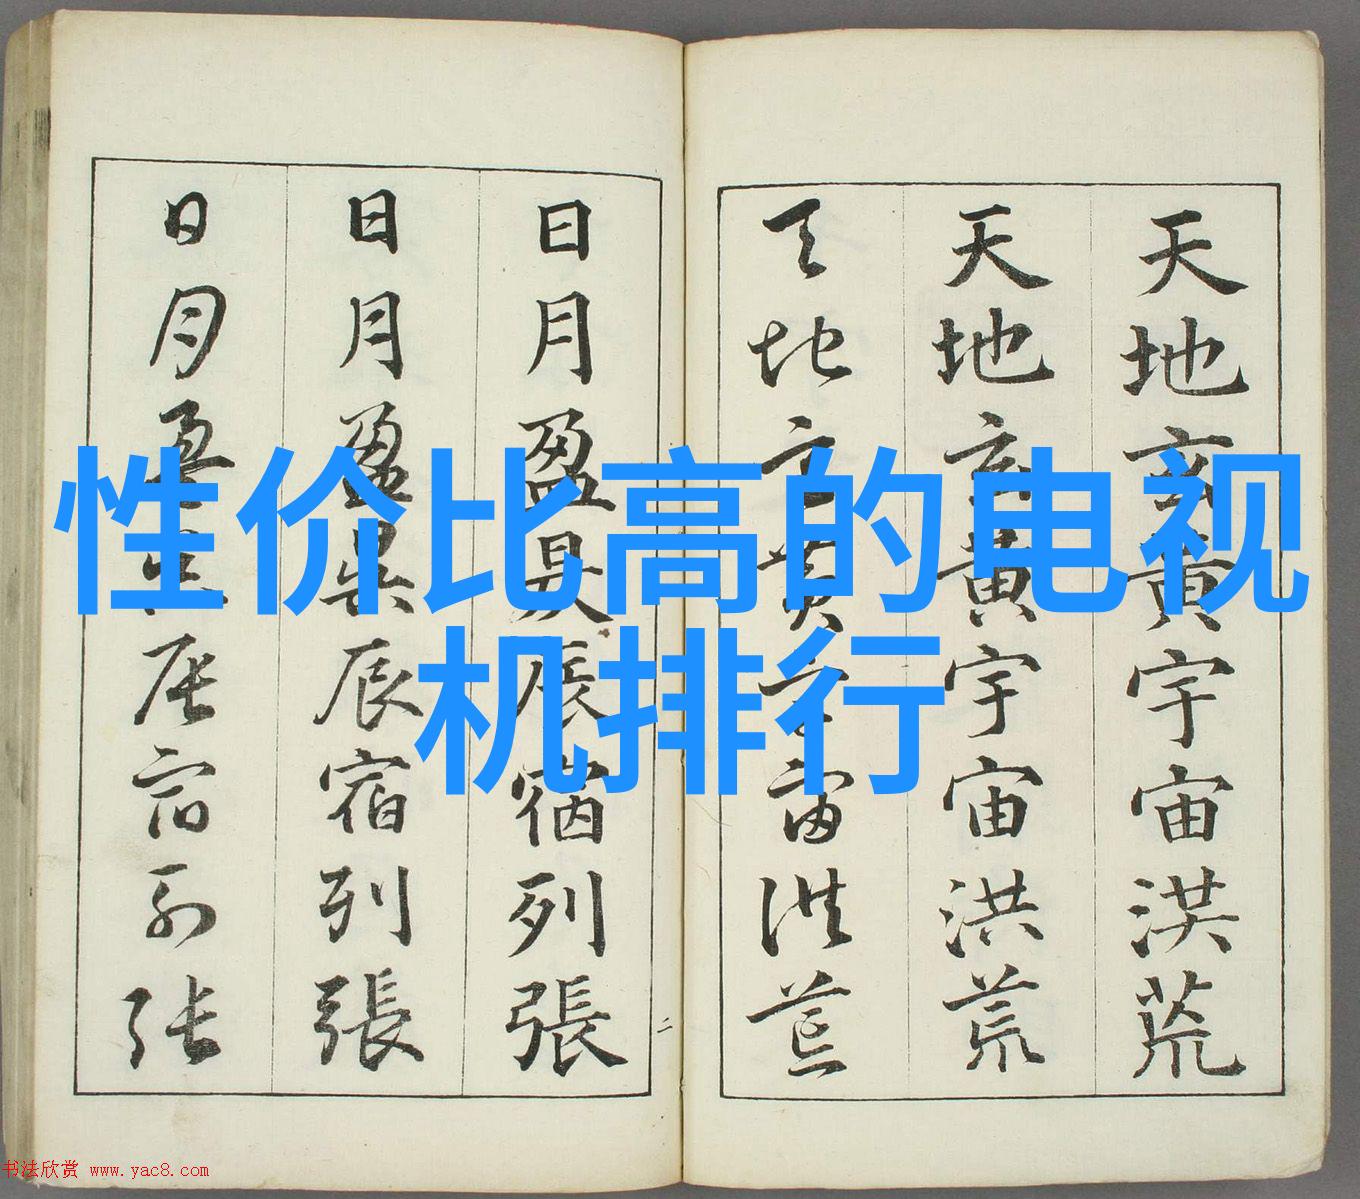 天地玄黄宇宙洪荒
天地玄黄宇宙洪荒
天地玄黄宇宙洪荒
日月盈昃辰宿列張
日月盈昃辰宿列張
日月盈昃辰宿列張
二
性价比高的电视
机排行
书法欣赏 www.yac8.com